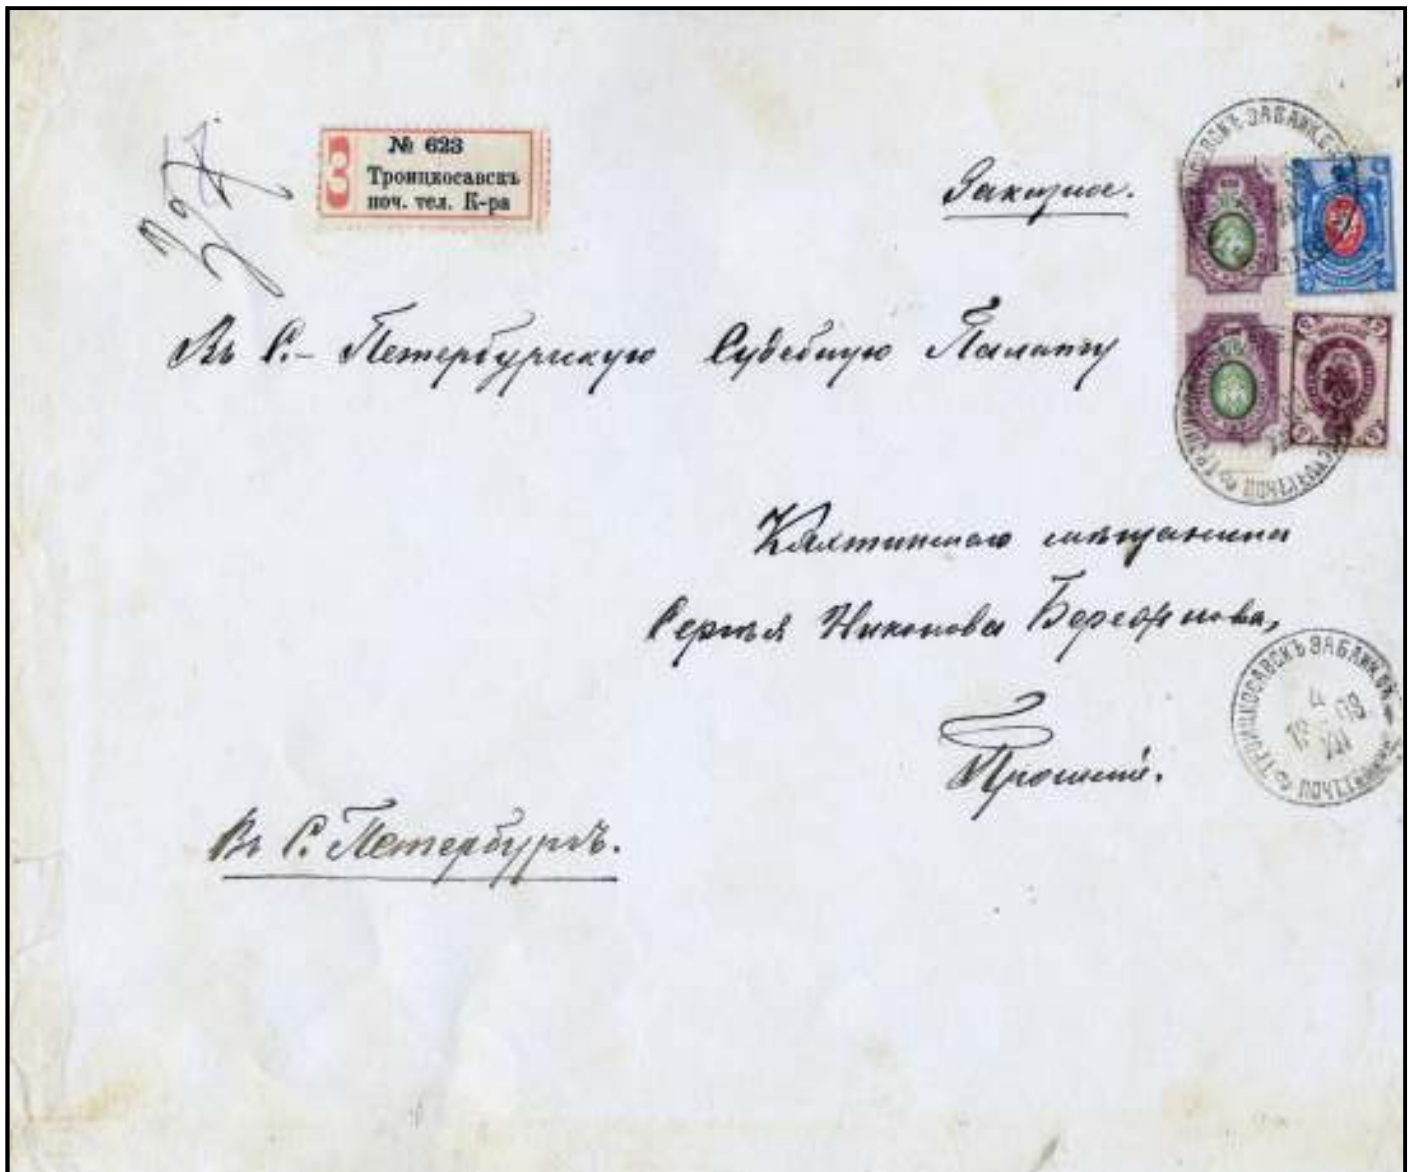 З
№ 623
Троицкосавскъ
поч. тел. К-ра
Заказное.
Въ С.-Петербургскую Судебную Палату
Кяхтинскаго мѣщанина
Сергѣя Никонова Бережнова,
Прошеніе.
Въ С. Петербургъ.
ТРОИЦКОСАВСКЪ ЗАБАЙК. ОБ.
4
19 08
VII